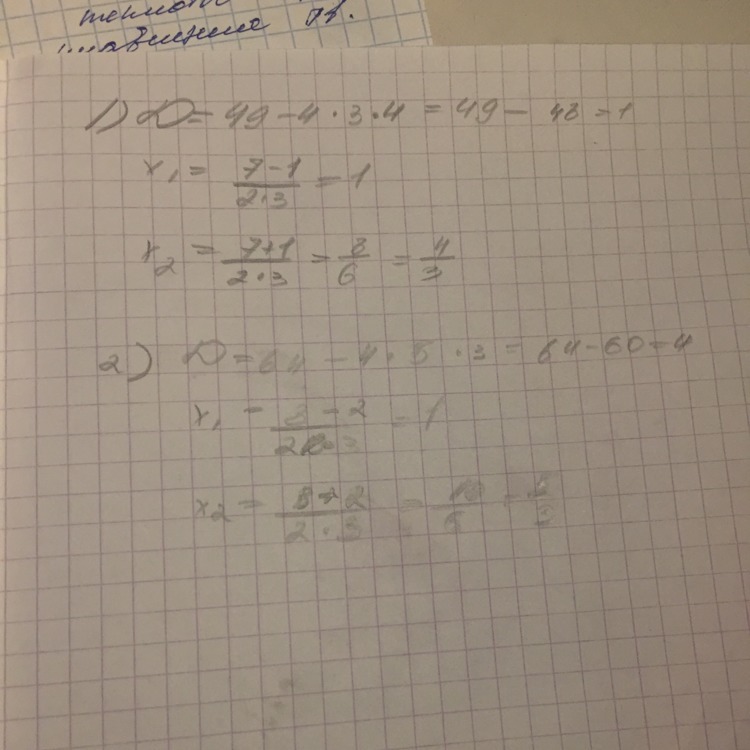 тепло
1) D = 49 - 4 · 3 · 4 = 49 - 48 = 1
x₁ = (7-1)/(2·3) = 1
x₂ = (7+1)/(2·3) = 8/6 = 4/3
2) D = 64 - 4 · 5 · 3 = 64 - 60 = 4
x₁ = (8-2)/(2·3) = 1
x₂ = (8+2)/(2·3) = 10/6 = 5/3